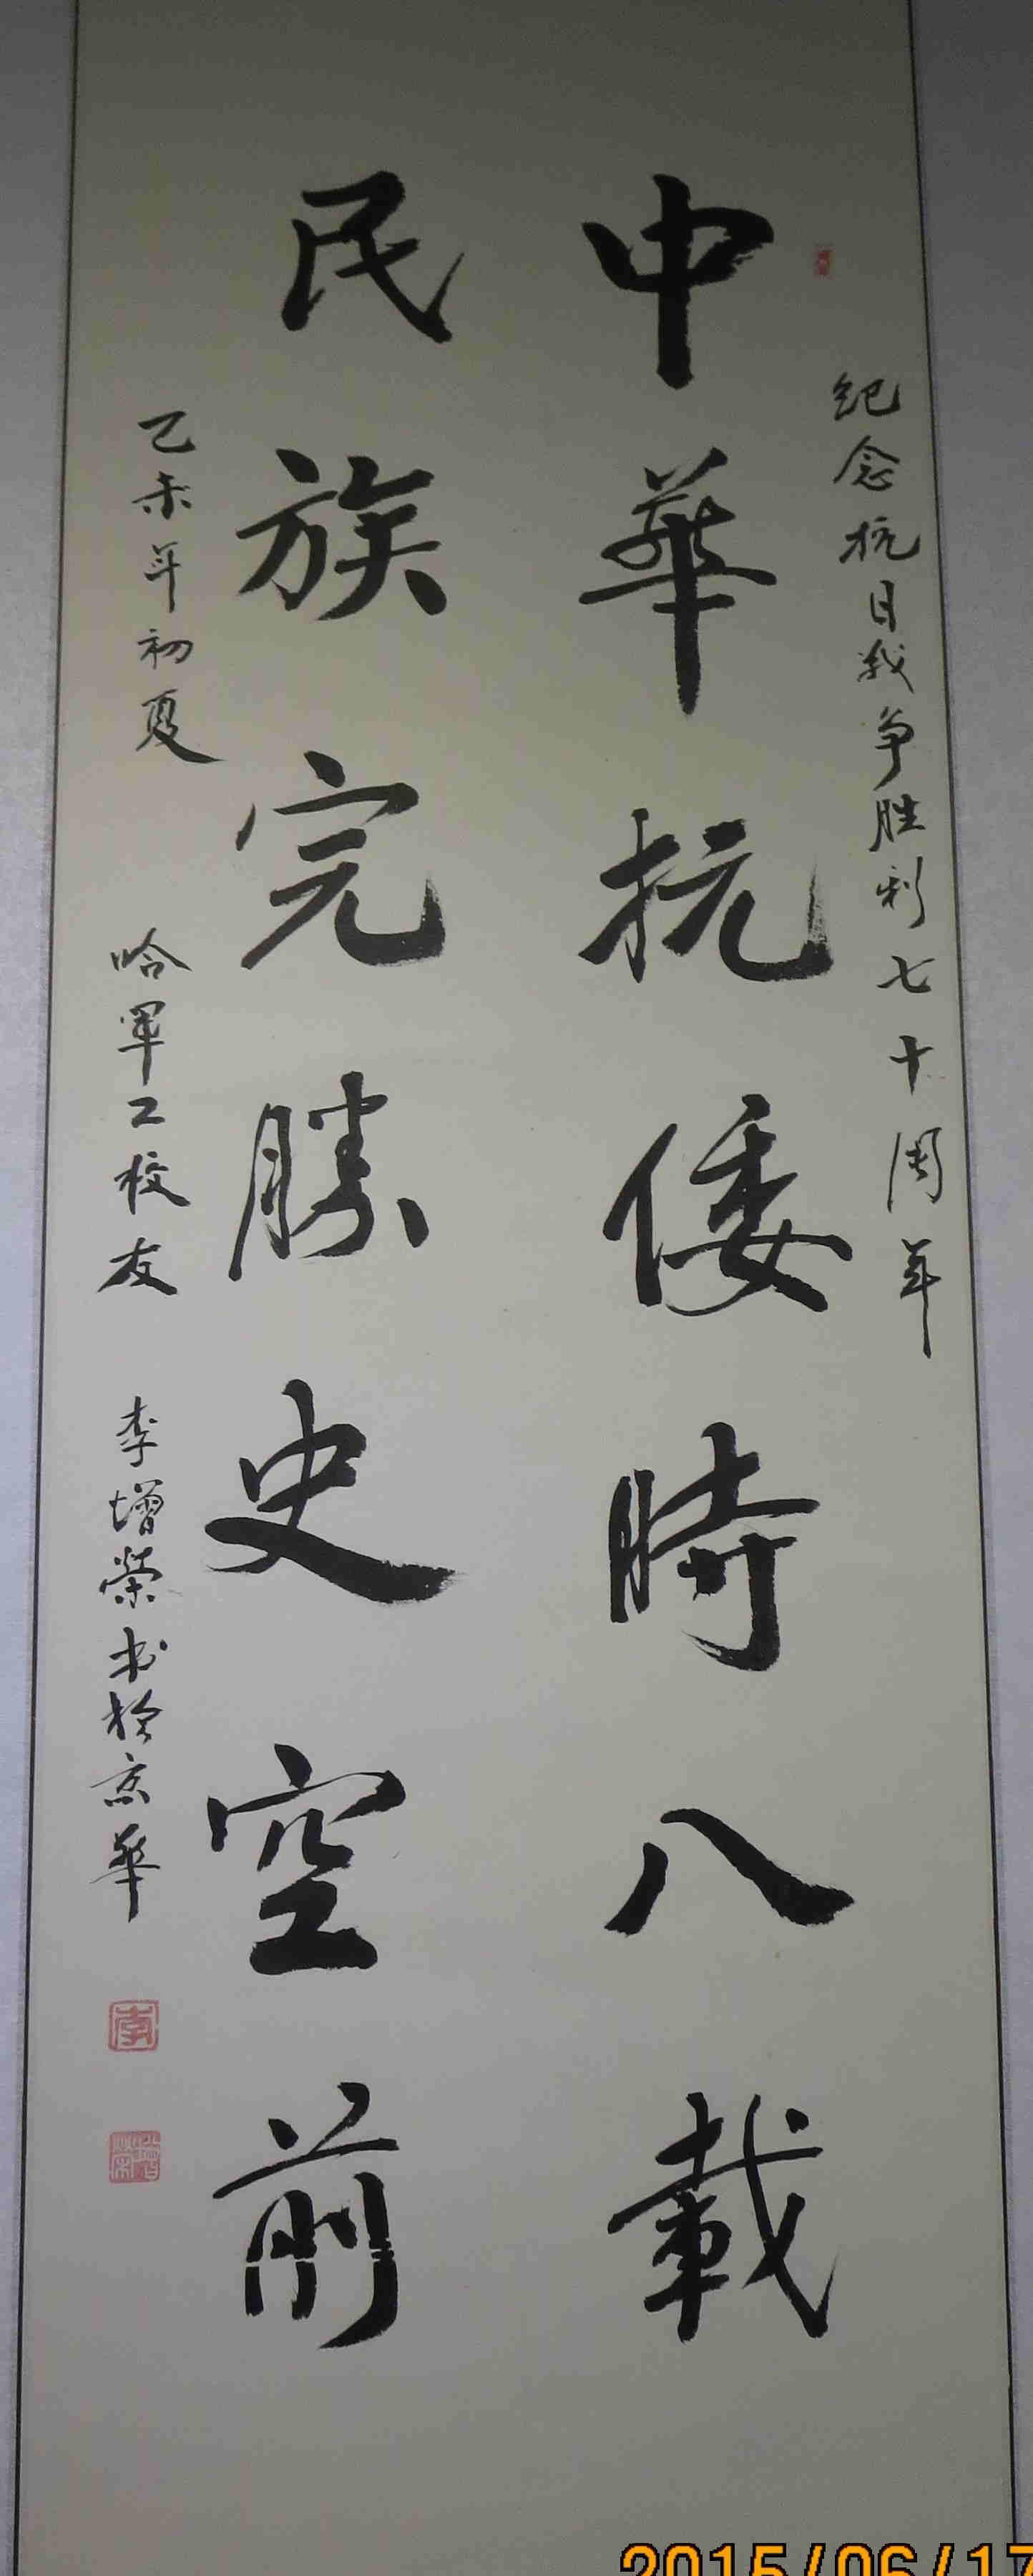 纪念抗日战争胜利七十周年
中華抗倭時八載
民族完勝史空前
乙未年初夏
哈军工校友
李增榮书於京華
李
增榮
2015/06/17